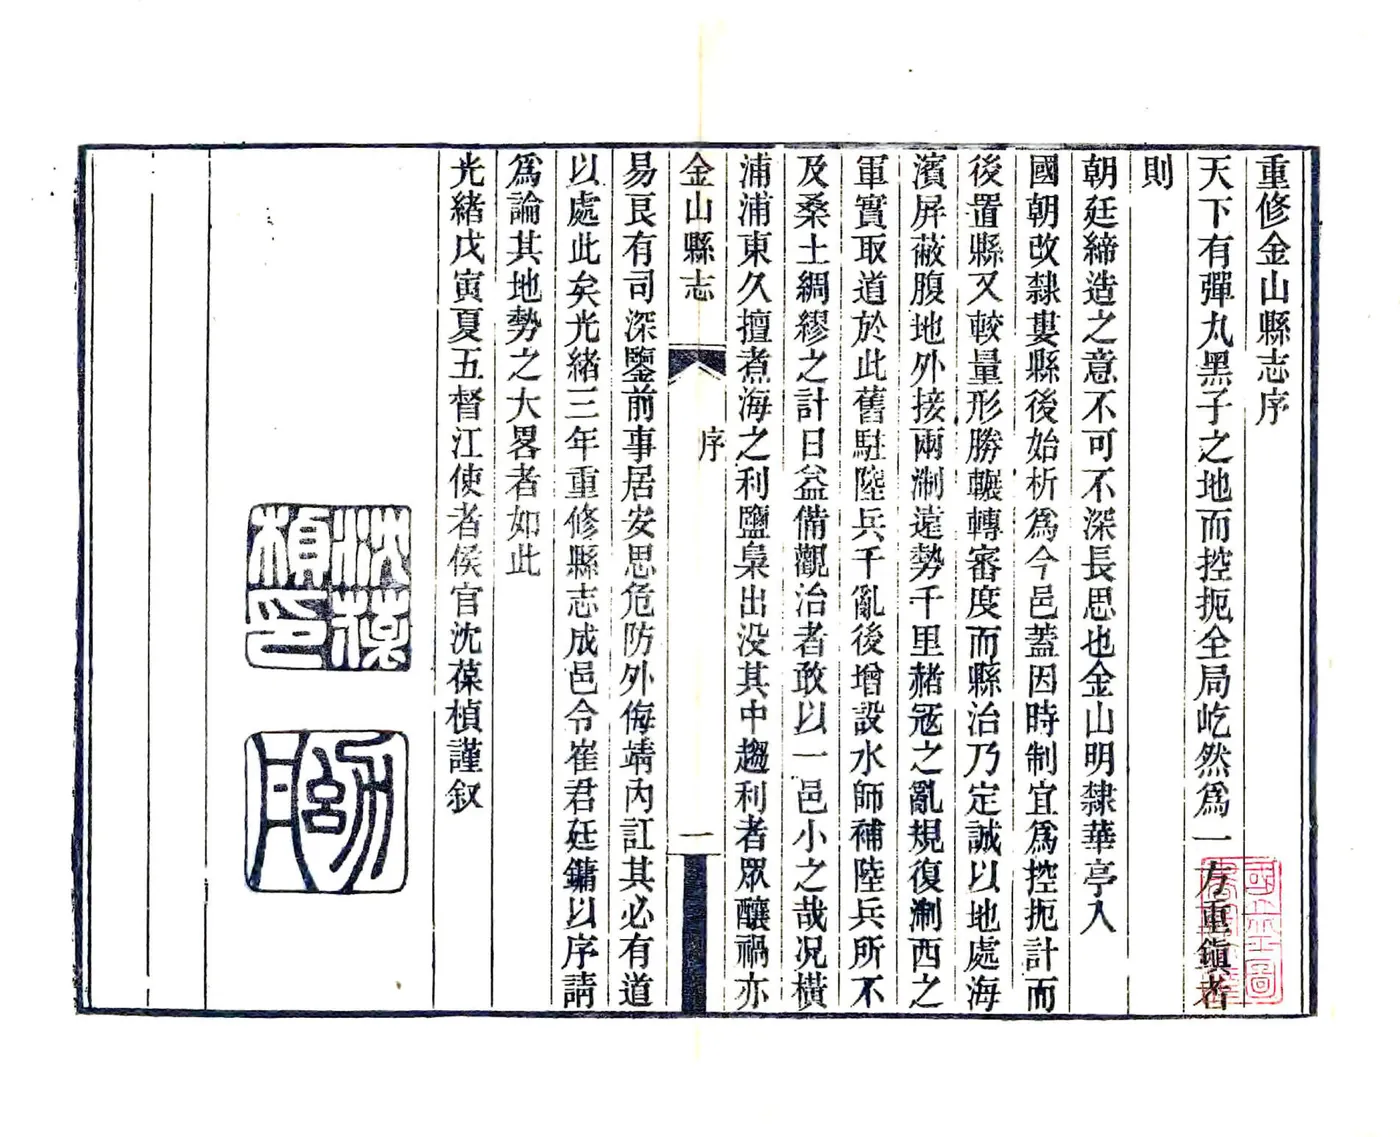 重修金山縣志序
天下有彈丸黑子之地而控扼全局屹然爲一方重鎮者
則
朝廷締造之意不可不深長思也金山明隸華亭入
國朝改隸婁縣後始析爲今邑蓋因時制宜爲控扼計而
後置縣又較量形勝輾轉審度而縣治乃定誠以地處海
濱屏蔽腹地外接兩淛遠勢千里赭寇之亂規復淛西之
軍實取道於此舊駐陸兵千亂後增設水師補陸兵所不
及桑土綢繆之計日益備觀治者敢以一邑小之哉况橫
浦浦東久擅煮海之利鹽梟出没其中趨利者眾釀禍亦
金山縣志
序
一
易艮有司深鑒前事居安思危防外侮靖內訌其必有道
以處此矣光緒三年重修縣志成邑令崔君廷鏞以序請
爲論其地勢之大畧者如此
光緒戊寅夏五督江使者侯官沈葆楨謹叙
沈葆楨印
國立圖